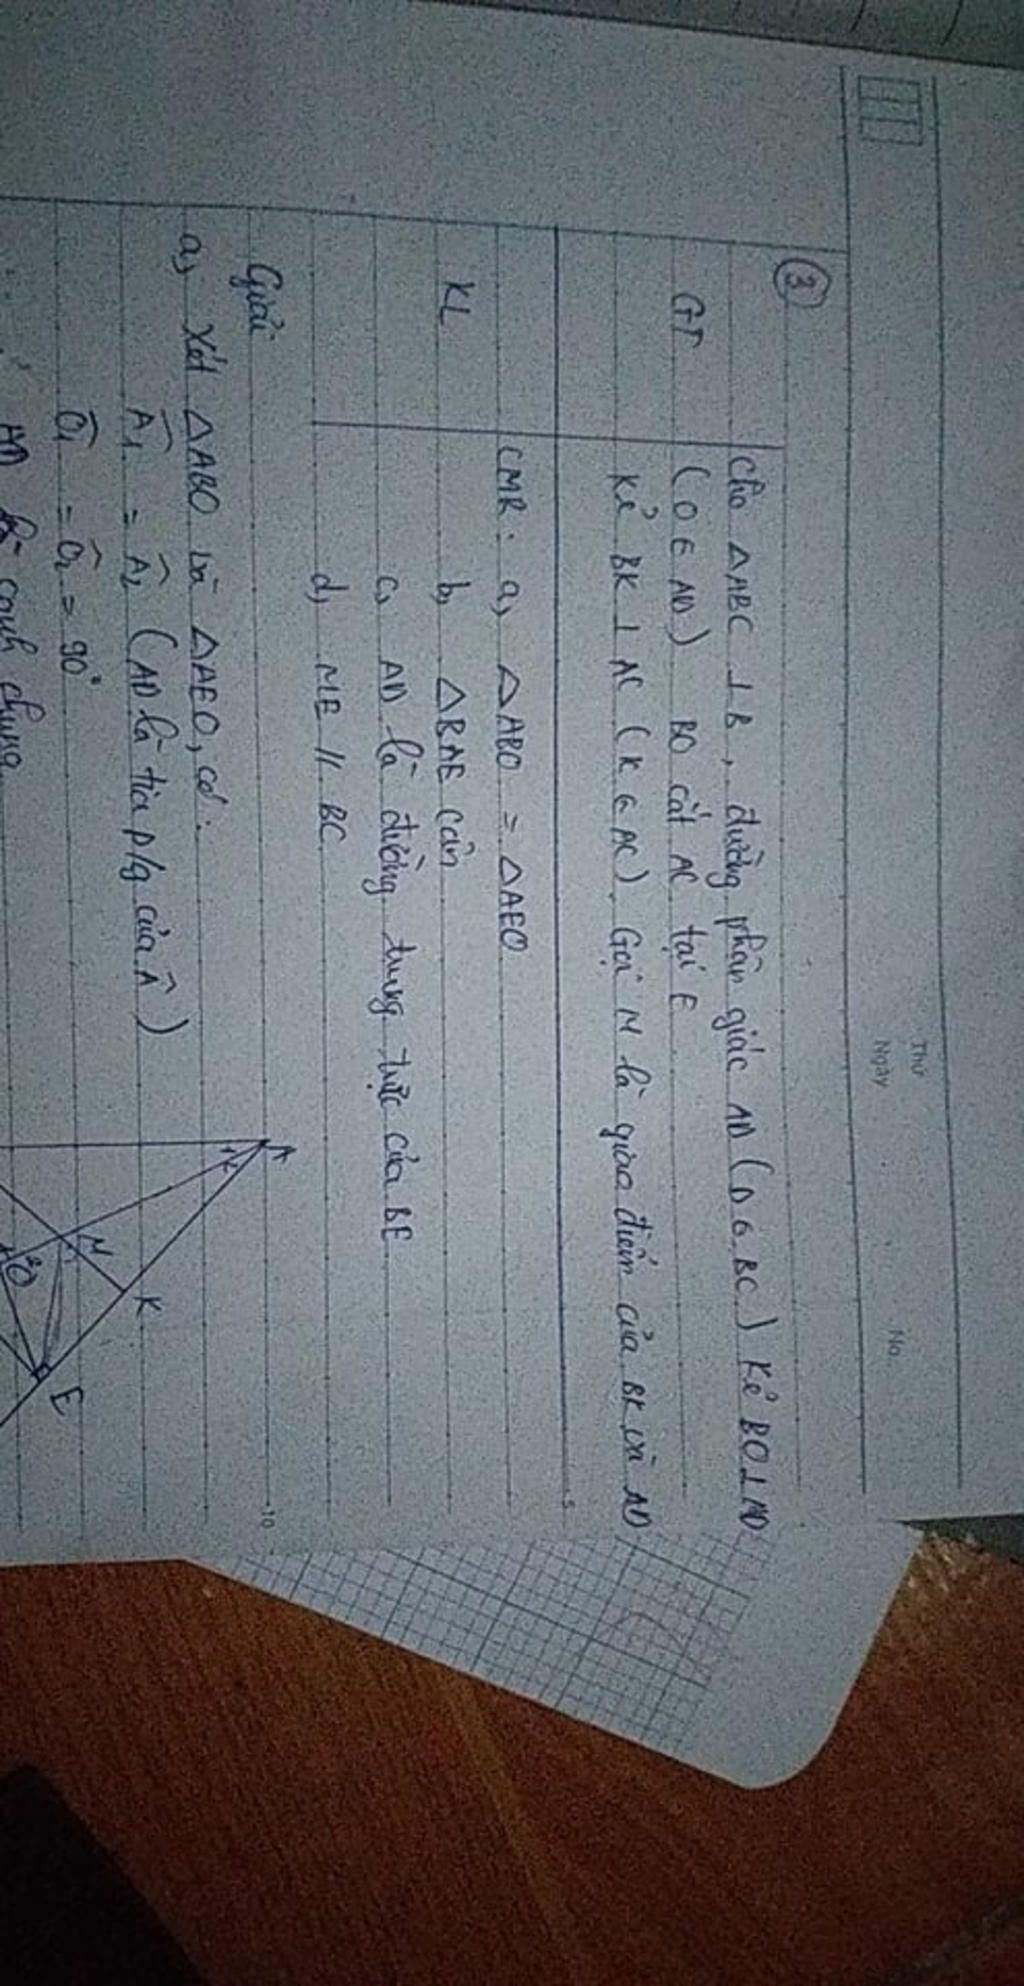 Thứ
Ngày
No.
3
GT
Cho △ABC ⊥ B, đường phân giác AD (D ∈ BC) Kẻ BO ⊥ AD
(O ∈ AD) BO cắt AC tại E
Kẻ BK ⊥ AC (K ∈ AC). Gọi M là giao điểm của BK và AD
5
KL
CMR: a, △ABO = △AEO
b, △BAE cân
c, AD là đường trung trực của BE
d, ME // BC
10
Giải
a, Xét △ABO và △AEO, có:
Â1 = Â2 (AD là tia p/g của Â)
Ô1 = Ô2 = 90°
cạnh chung
A
1 2
M
K
2
O
E